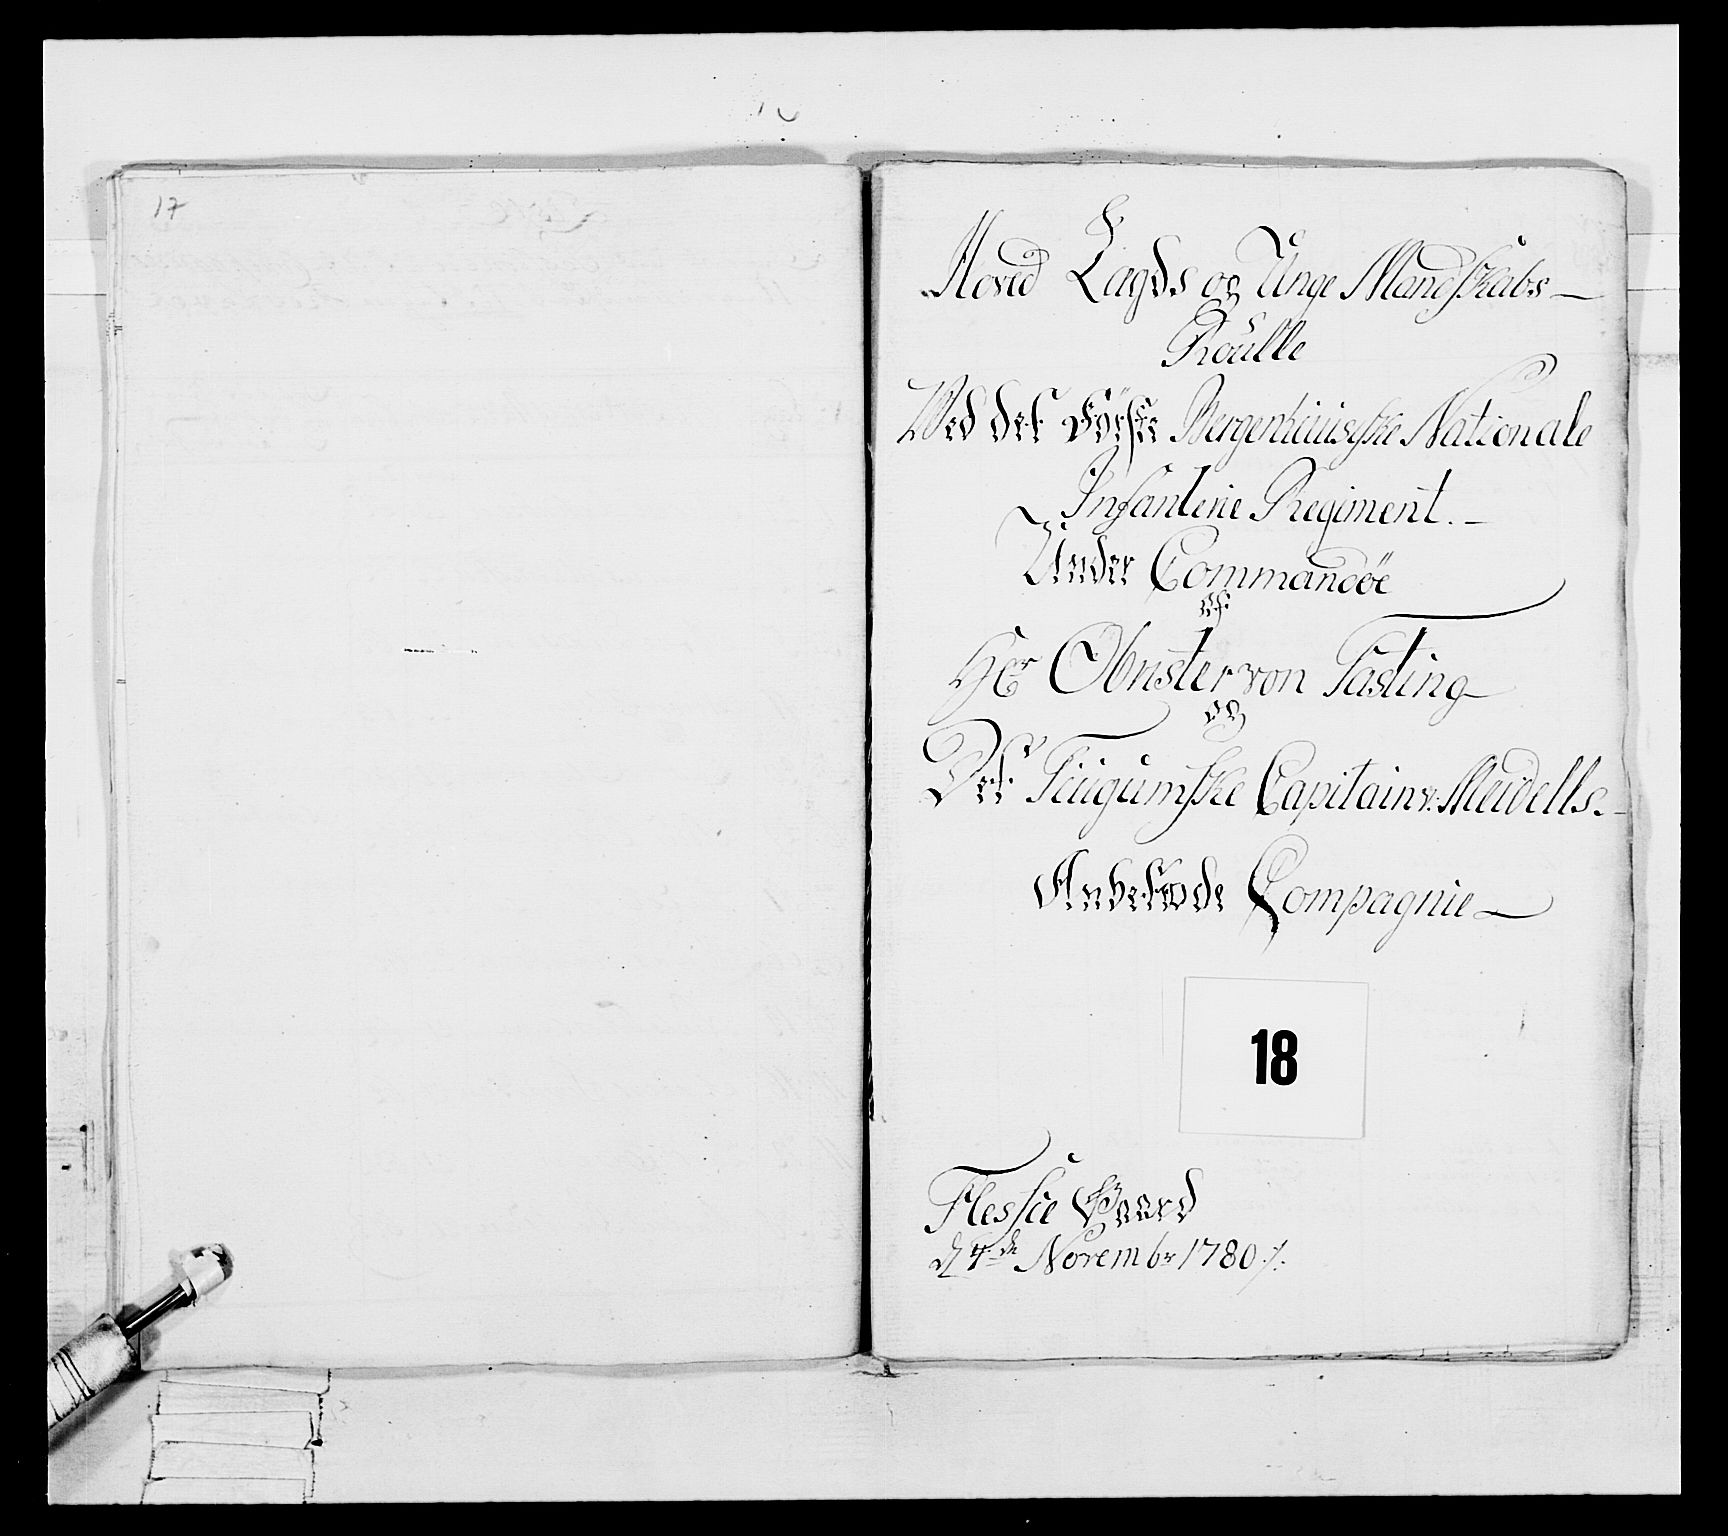 17
Hoved Lægds og Unge Mandskabs
Roülle
Wed det Første Bergenhuusiske Nationale
Infanterie Regiment.
Under Commandøe
af
Hr Obrister von Fasting
og
Det Teiigumske Capitain v: Meidells
Anbetrode Compagnie
18
Fleskie Gaard
d 4de Novembr 1780 ./.